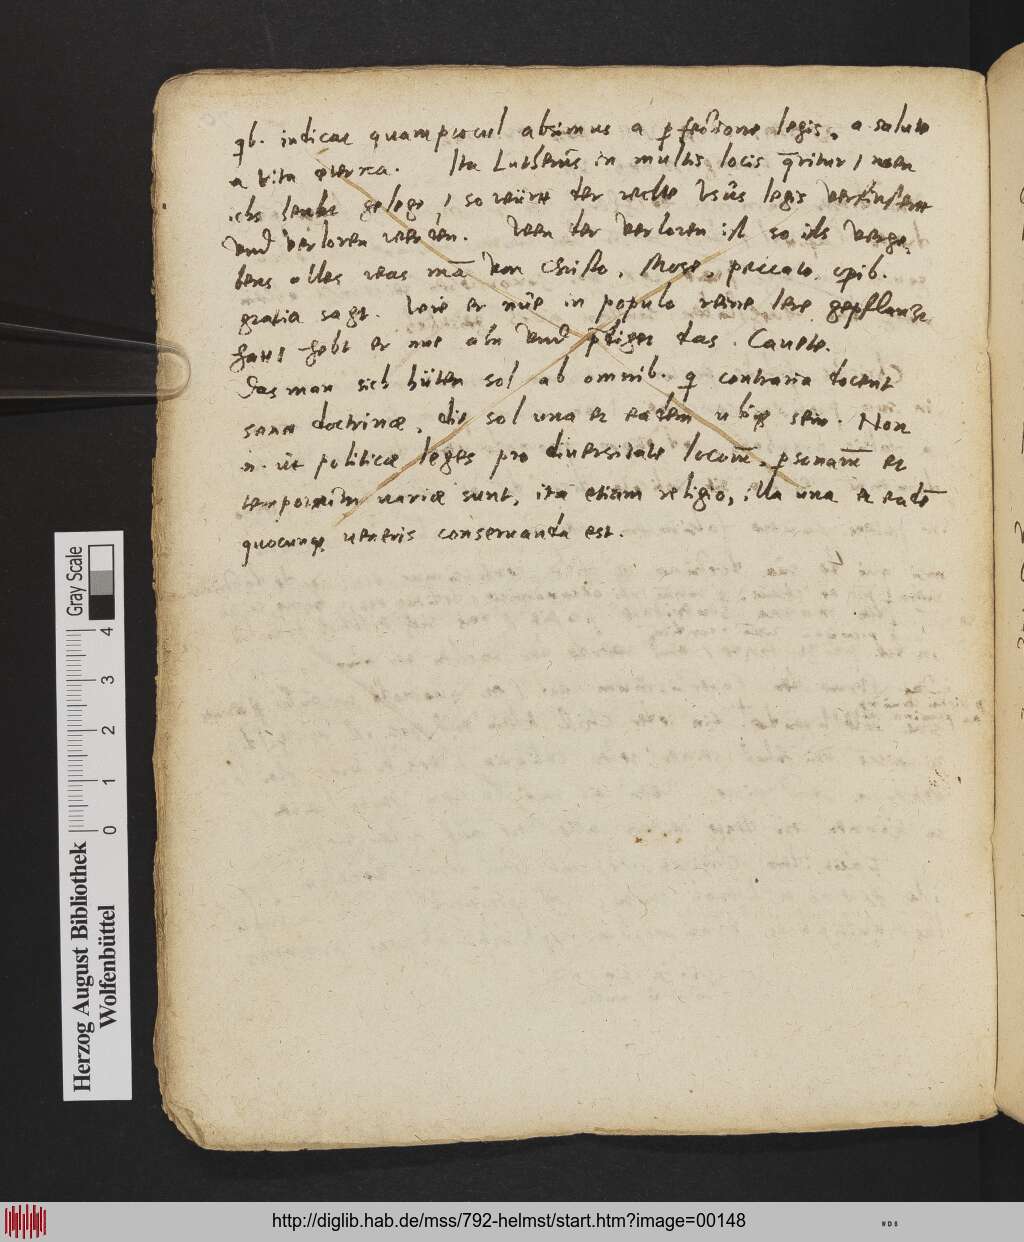 qb. indicat quam procul absimus a pfectione legis, a salute
a vita æterna. Ita Lutherus in multis locis queritur / wen
ichs heuhe gelege / so würt der rechte Usus legis verfinstert
und verloren werden. Wen der verloren ist so ists verge,
bens alles was mā von Christo, Mose, peccato, opib.
gratia sagt. Wie er nue in populo reine lere gepflantzt
hatt / hebt er nue abn und pdiget das. Cavete.
Das man sich hüten sol ab omnib. q contraria docent
sanæ doctrinæ, die sol una et eadem ubiq sein. Non
n. ut politicæ leges pro diversitate locorū, psonarū et
temporum variæ sunt, ita etiam religio, illa una et eadē
quocunq veneris conservanda est.
Gray Scale
0 1 2 3 4
Herzog August Bibliothek
Wolfenbüttel
http://diglib.hab.de/mss/792-helmst/start.htm?image=00148